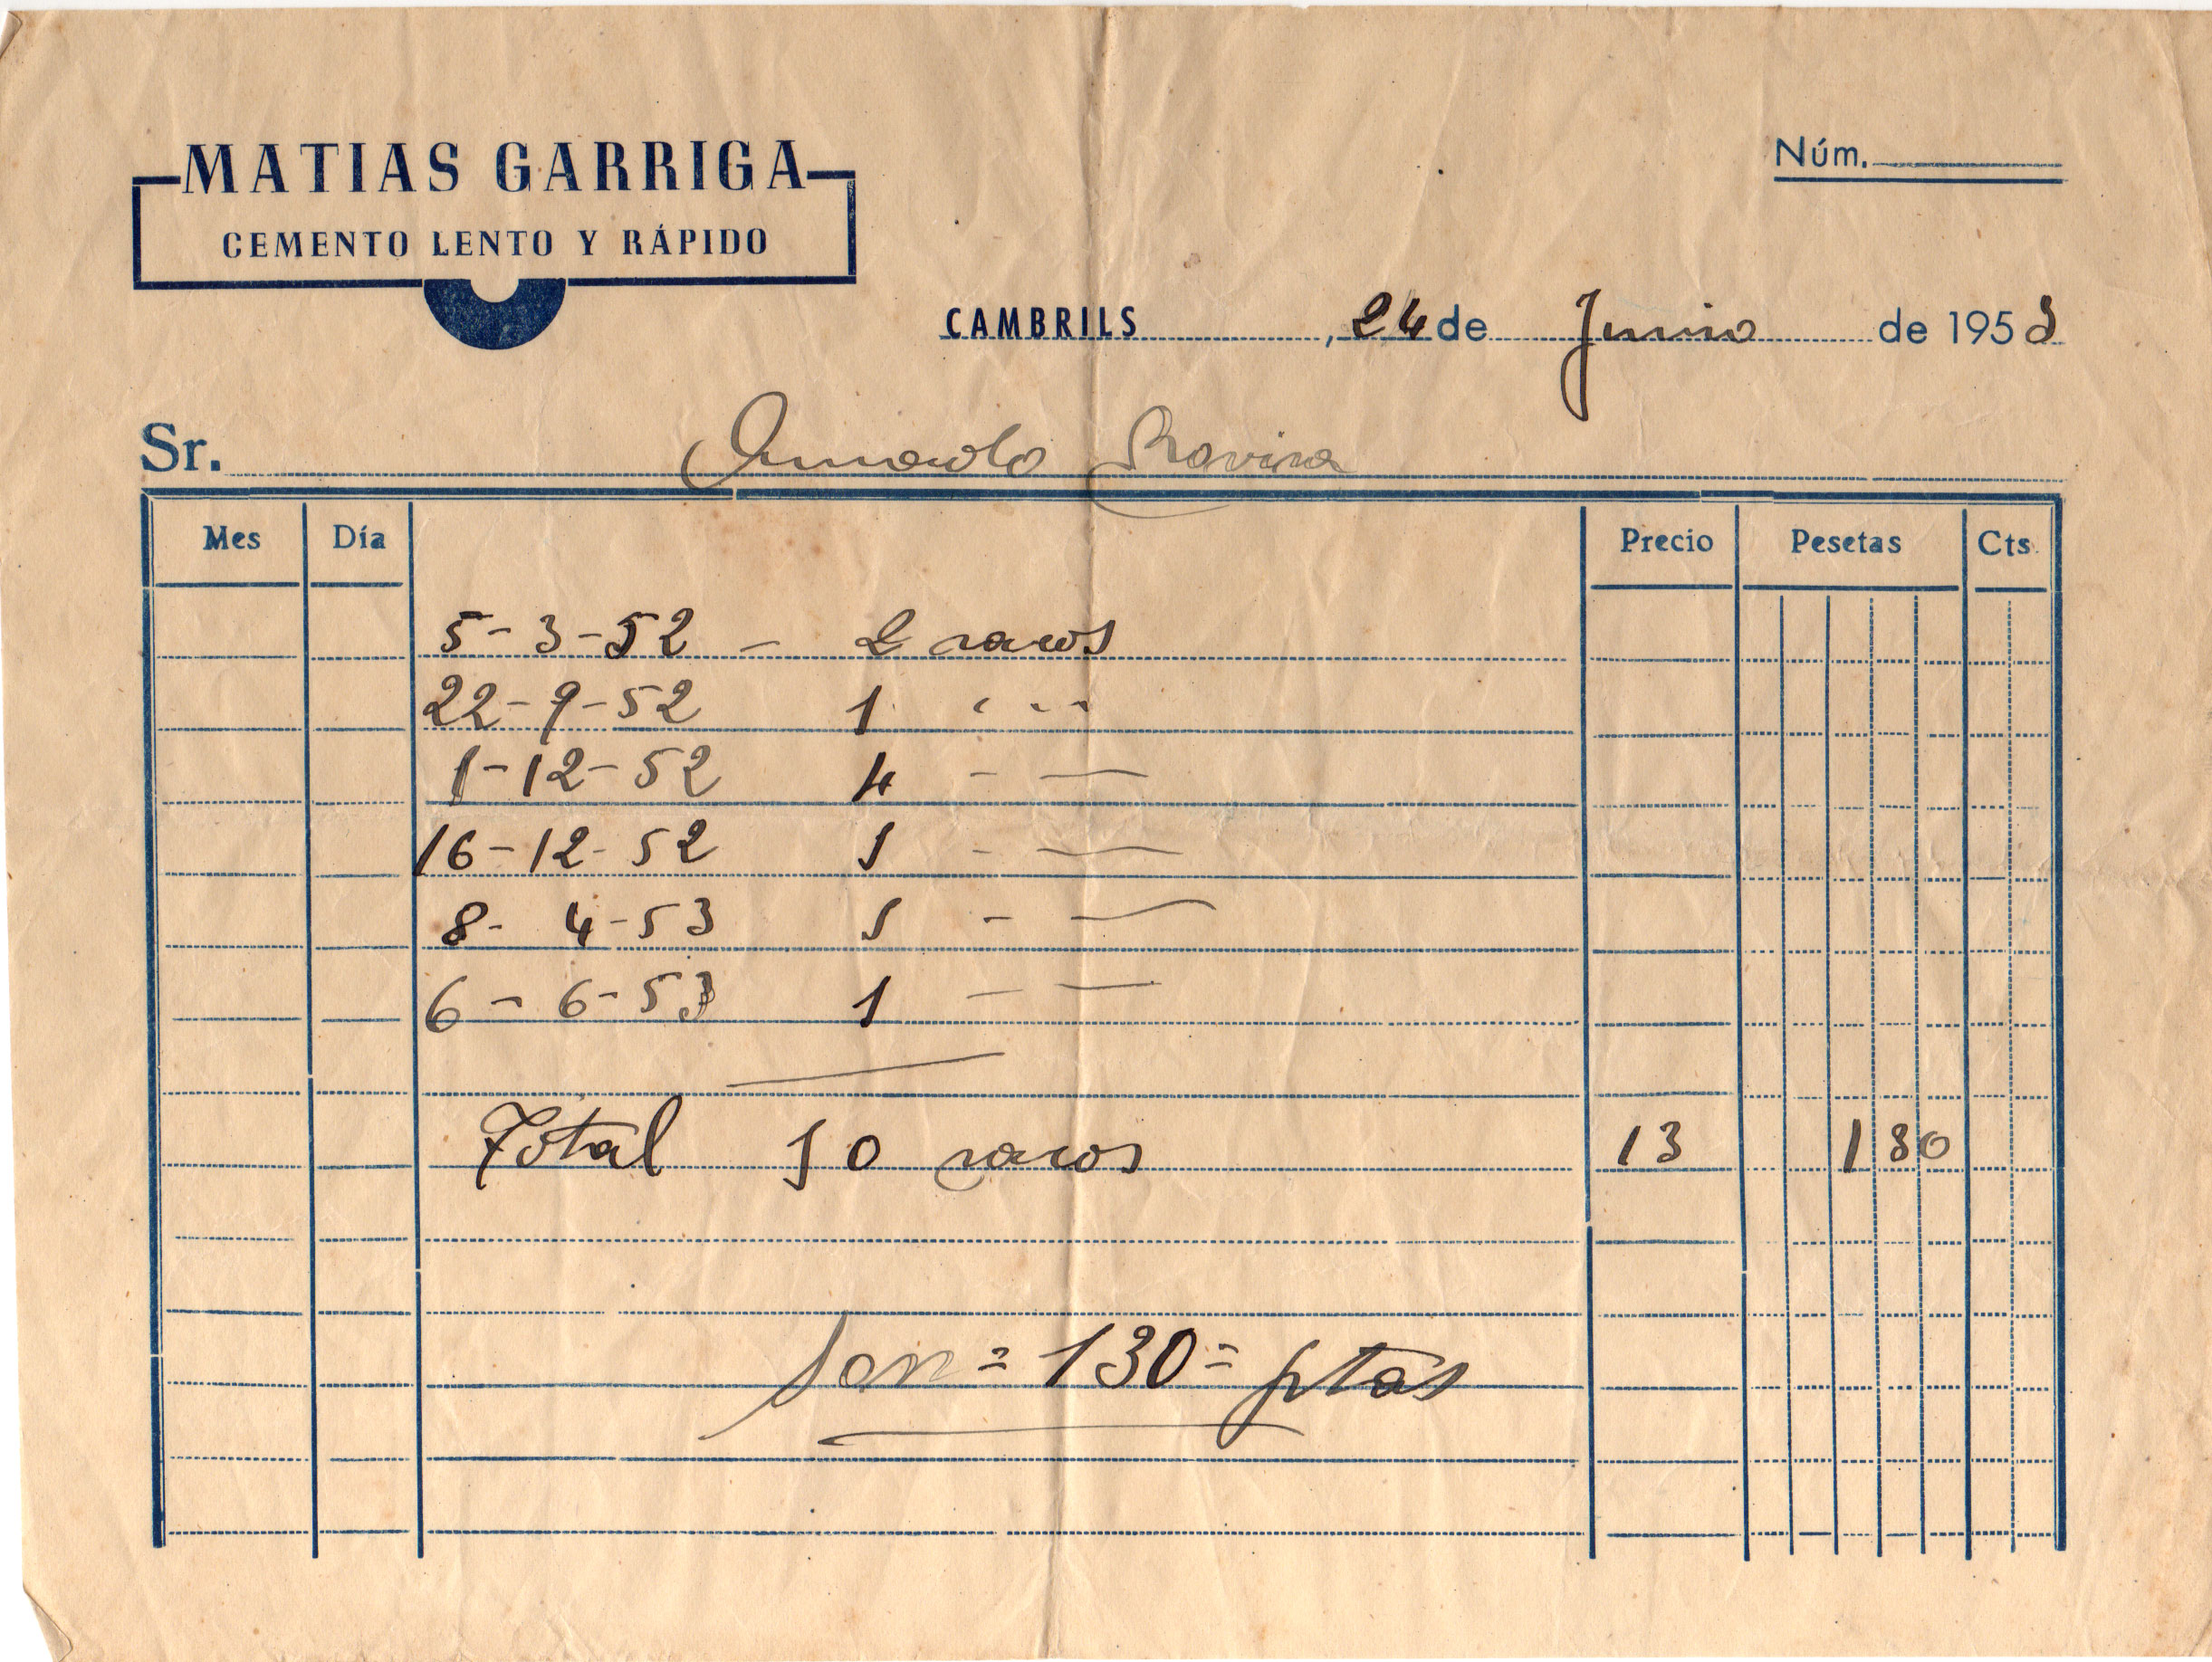 MATIAS GARRIGA
CEMENTO LENTO Y RÁPIDO
Núm.
CAMBRILS, 24 de Junio de 1953
Sr. Armando Rovira
Mes Día Precio Pesetas Cts.
5-3-52 - 2 sacos
22-9-52 1 " "
1-12-52 4 - —
16-12-52 1 - —
8-4-53 1 - —
6-6-53 1 - —
Total 10 sacos 13 130
Son = 130 = ptas